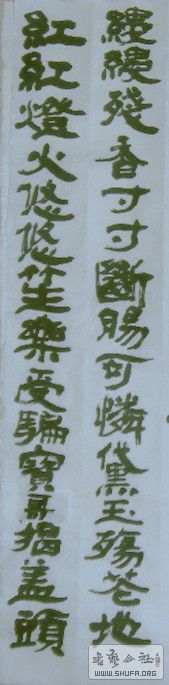 縷縷殘香寸寸斷腸可憐黛玉殤花地
紅紅燈火悠悠笙樂受騙寶哥揭蓋頭
書藝公社
WWW.SHUFA.ORG